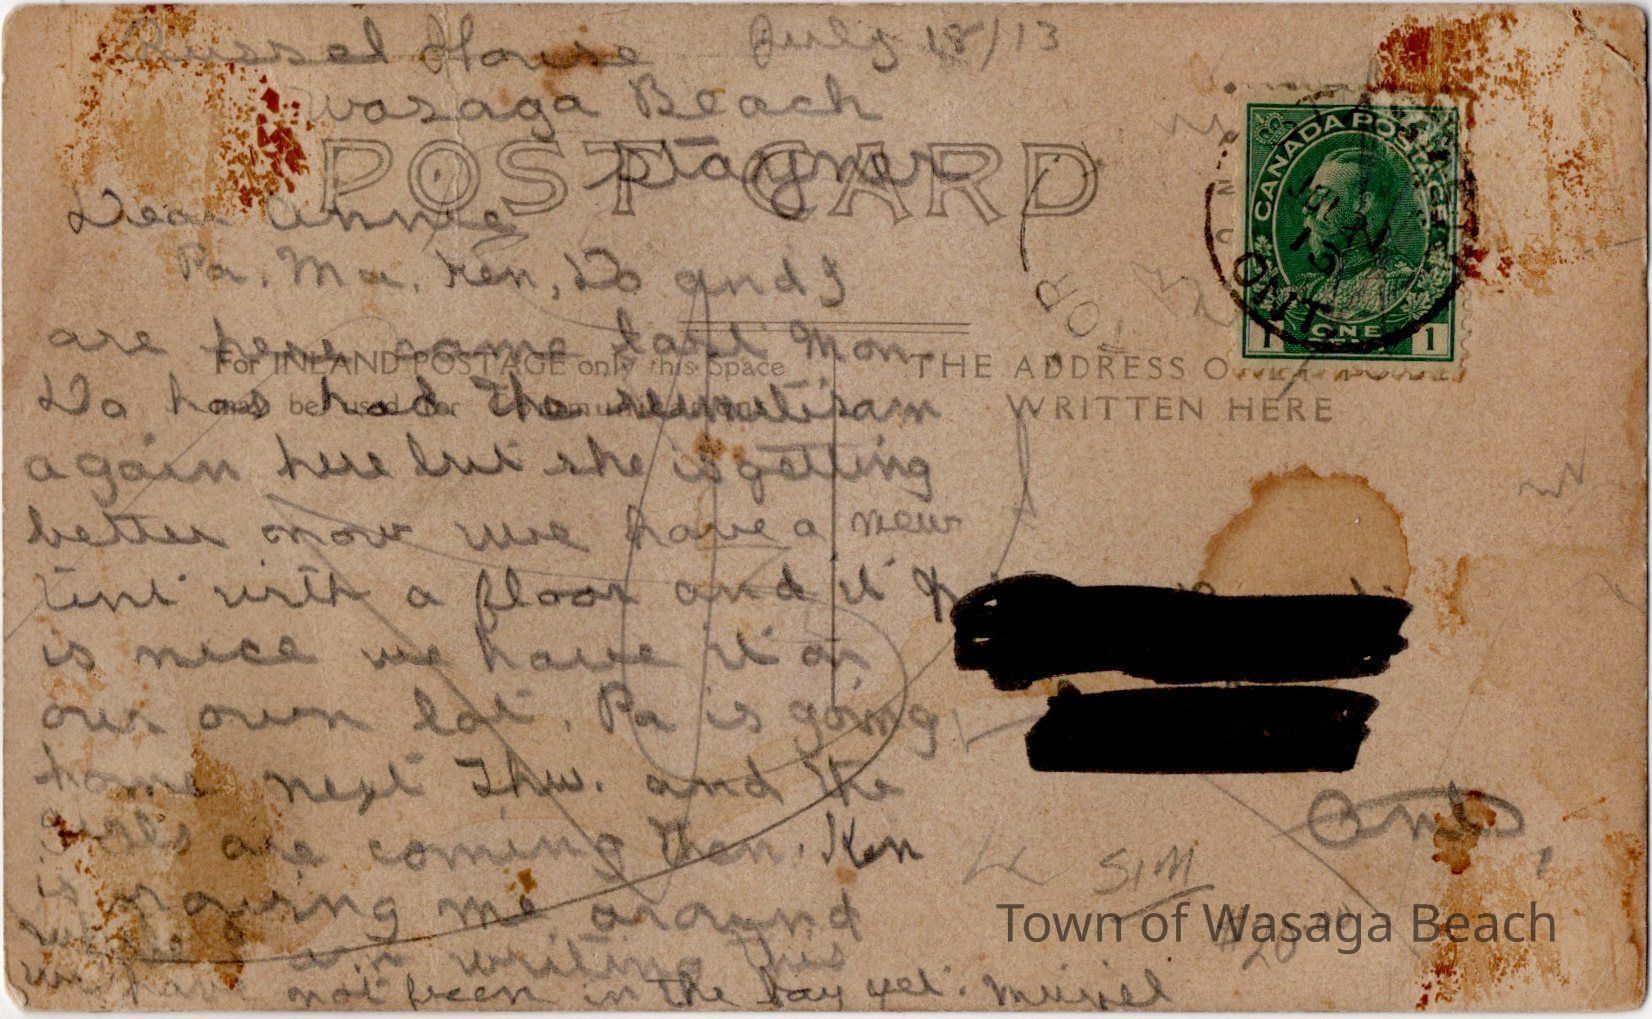 Russel House July 18/13
Wasaga Beach
Stayner
POST CARD
Dear Annie
Pa, Ma, Ken, Do and I
are here came last Mon.
Do has had the rumitisam
again here but she is getting
better now we have a new
tent with a floor and it
is nice we have it on
our own lot. Pa is going
home next Thur. and the
girls are coming then. Ken
is rowing me around
while I am writing this
we have not been in the bay yet. Muriel
For INLAND POSTAGE only this Space
may be used for Communication
THE ADDRESS
WRITTEN HERE
CANADA POSTAGE
1 ONE 1
ONT
Ont.
SIM
20
Town of Wasaga Beach